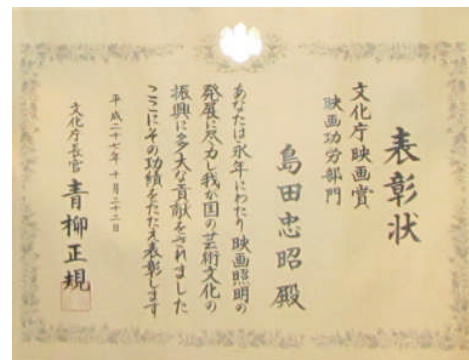 表彰状
文化庁映画賞
映画功労部門
島田忠昭殿
あなたは永年にわたり映画照明の
発展に尽力し我が国の芸術文化の
振興に多大な貢献をされました
ここにその功績をたたえ表彰します
平成二十七年十月二十二日
文化庁長官 青柳正規